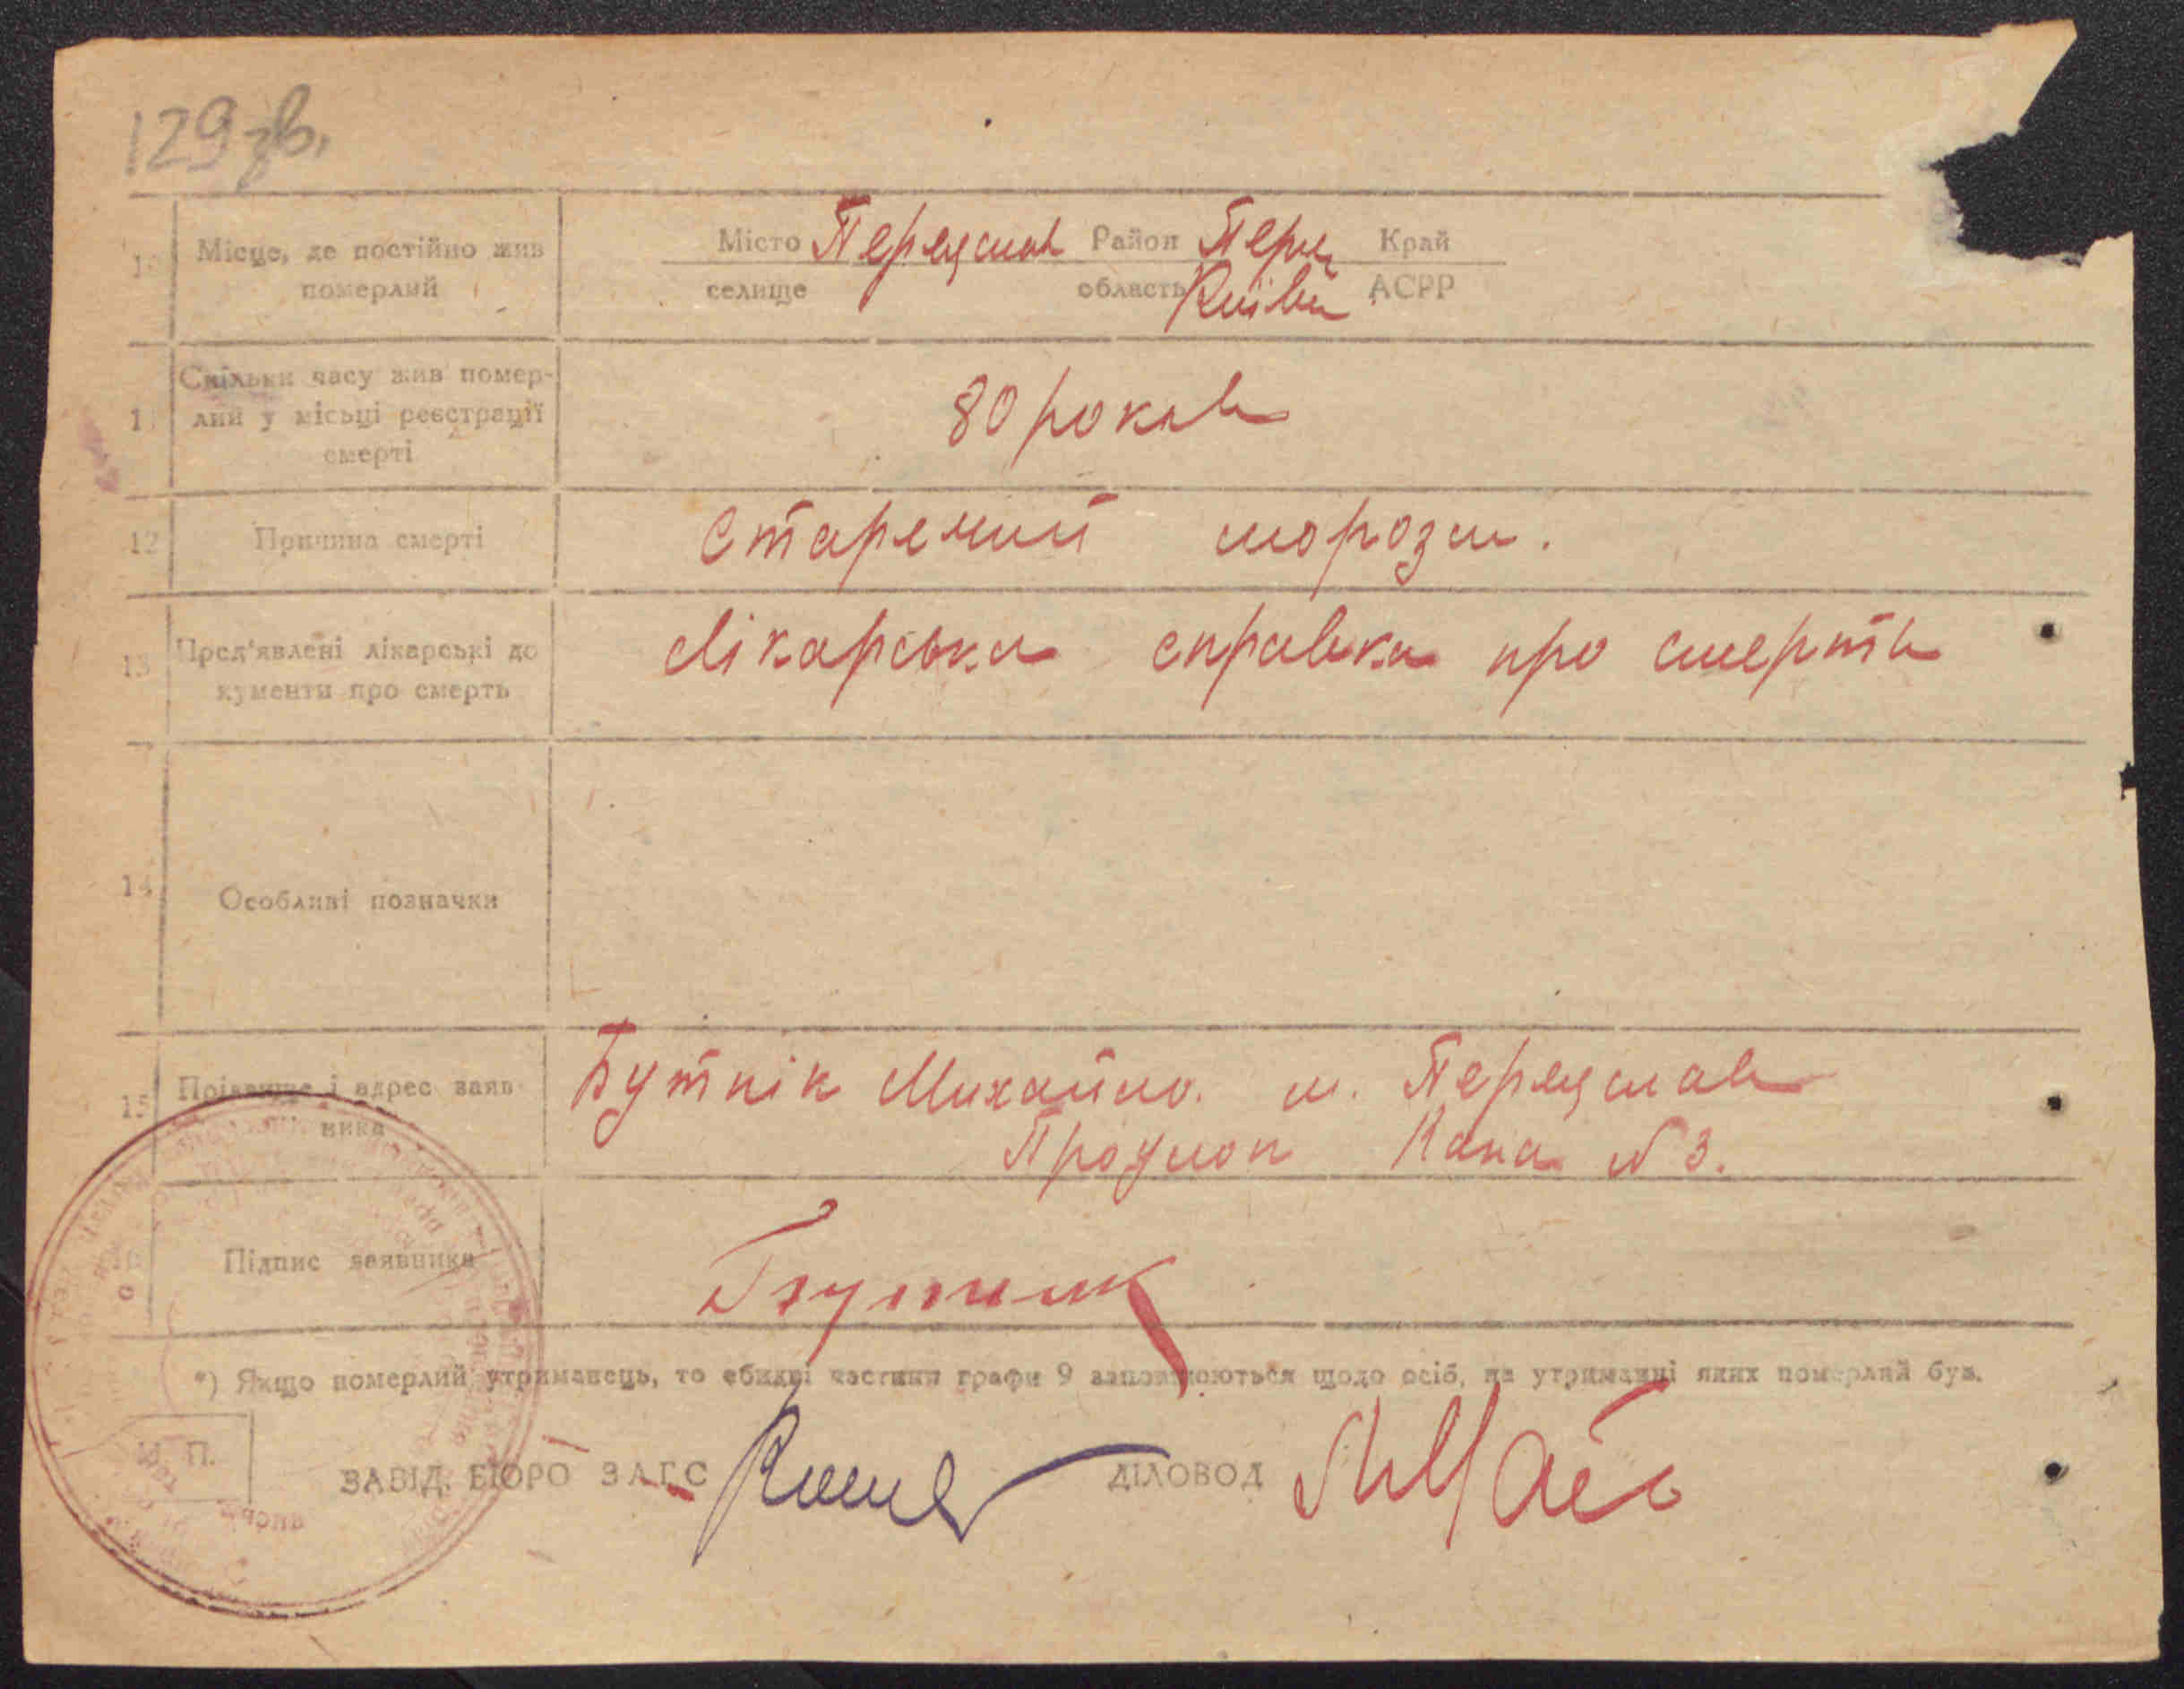 129 зв.
10 Місце, де постійно жив померлий
Місто Переяслав Район Пере Край
селище область Київ АСРР
11 Скільки часу жив помер-
лий у місьці реєстрації
смерті
80 років
12 Причина смерті
Старечий морозм.
13 Пред'явлені лікарські до
кументи про смерть
Лікарська справка про смерть
14 Особливі позначки
15 Прізвище і адрес заяв
ника
Бутнік Михайло. м. Переяслав
№ 3.
Підпис заявника
Бутник
*) Якщо померлий утриманець, то обидві частини графи 9 заповнюються щодо осіб, на утриманні яких померлий був.
М. П.
ЗАВІД. БЮРО ЗАГС
ДІЛОВОД